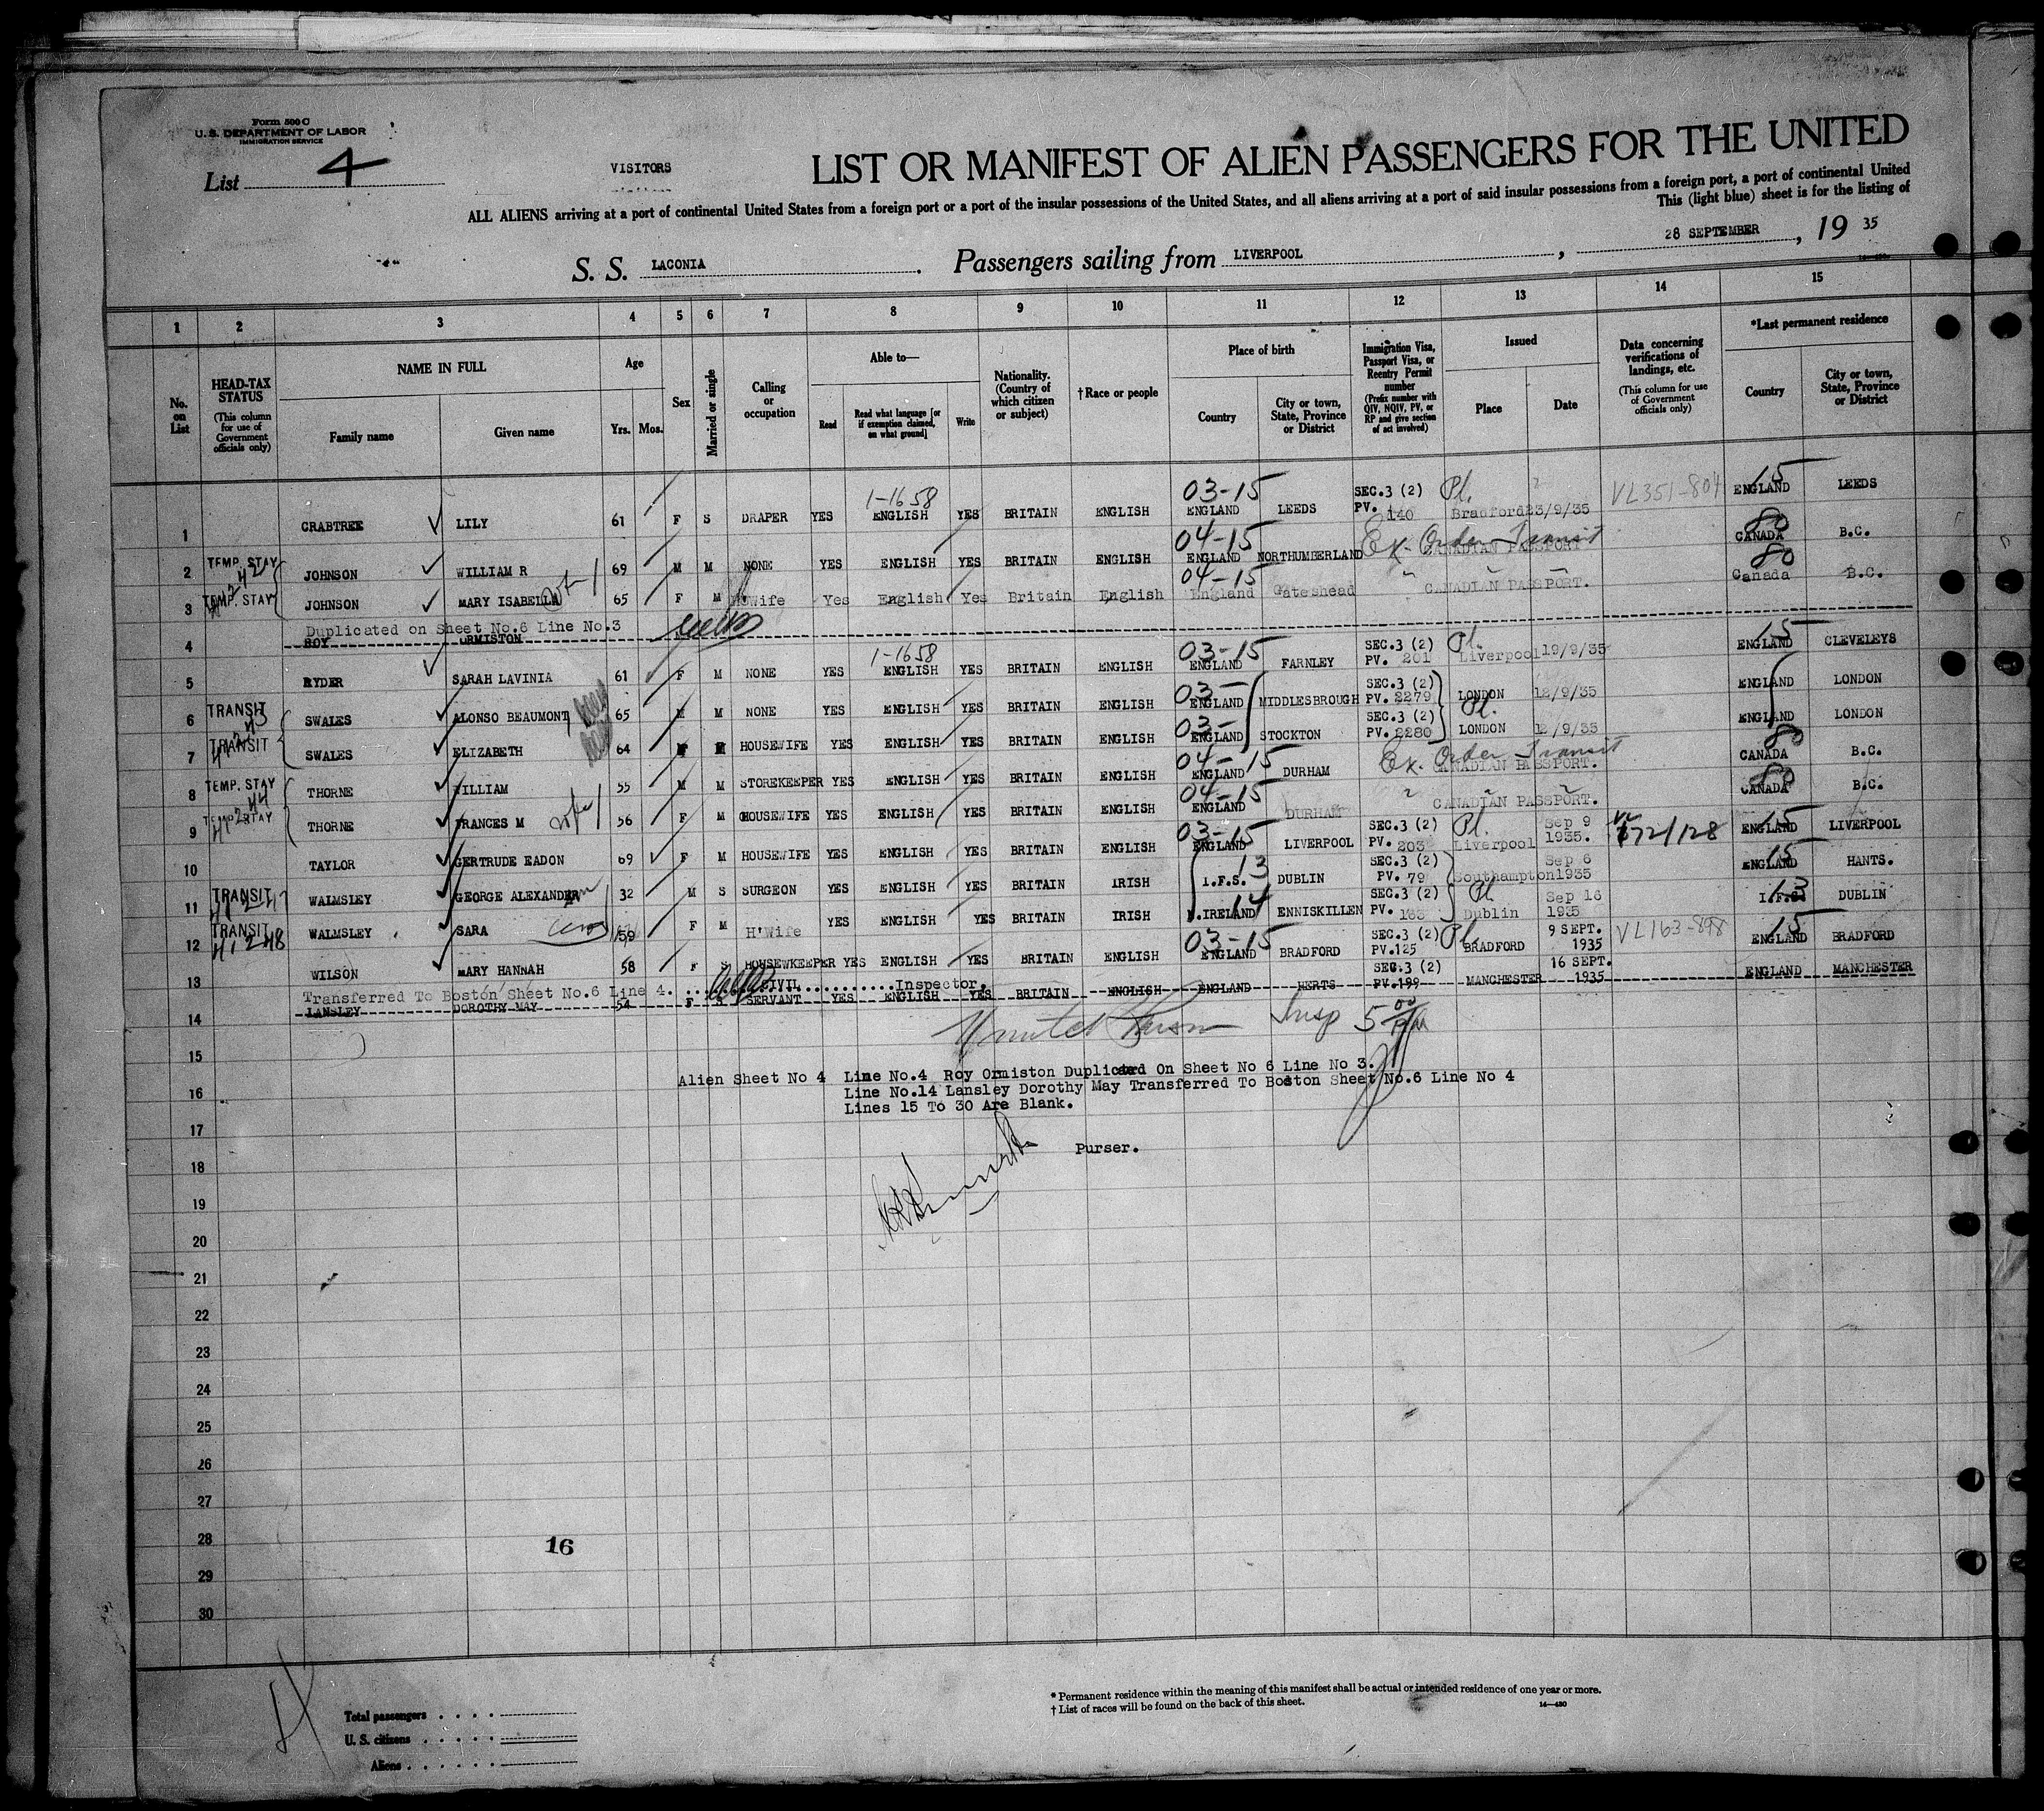 Form 500 C
U. S. DEPARTMENT OF LABOR
IMMIGRATION SERVICE
List 4
VISITORS
LIST OR MANIFEST OF ALIEN PASSENGERS FOR THE UNITED
ALL ALIENS arriving at a port of continental United States from a foreign port or a port of the insular possessions of the United States, and all aliens arriving at a port of said insular possessions from a foreign port, a port of continental United
This (light blue) sheet is for the listing of
S. S. LACONIA . Passengers sailing from LIVERPOOL , 28 SEPTEMBER , 19 35
1 2 3 4 5 6 7 8 9 10 11 12 13 14 15
No. on List
HEAD-TAX STATUS (This column for use of Government officials only)
NAME IN FULL Family name Given name
Age Yrs. Mos.
Sex
Married or single
Calling or occupation
Able to— Read Read what language [or if exemption claimed, on what ground] Write
Nationality. (Country of which citizen or subject)
†Race or people
Place of birth Country City or town, State, Province or District
Immigration Visa, Passport Visa, or Reentry Permit number (Prefix number with QIV, NQIV, PV, or RP and give section of act involved)
Issued Place Date
Data concerning verifications of landings, etc. (This column for use of Government officials only)
*Last permanent residence Country City or town, State, Province or District
1 CRABTREE LILY 61 F S DRAPER YES 1-1658 ENGLISH YES BRITAIN ENGLISH 03-15 ENGLAND LEEDS SEC.3 (2) PV. 140 Pl. Bradford 23/9/35 VL351-804 15 ENGLAND LEEDS
2 TEMP. STAY JOHNSON WILLIAM R 69 M M NONE YES ENGLISH YES BRITAIN ENGLISH 04-15 ENGLAND NORTHUMBERLAND Ex. Order Transit CANADIAN PASSPORT 80 CANADA B.C.
3 TEMP. STAY JOHNSON MARY ISABELLA 65 F M H'Wife Yes English Yes Britain English 04-15 England Gateshead CANADIAN PASSPORT. 80 Canada B.C.
Duplicated on Sheet No.6 Line No.3
4 ROY ORMISTON
5 RYDER SARAH LAVINIA 61 F M NONE YES 1-1658 ENGLISH YES BRITAIN ENGLISH 03-15 ENGLAND FARNLEY SEC.3 (2) PV. 201 Pl. Liverpool 19/9/35 15 ENGLAND CLEVELEYS
6 TRANSIT SWALES ALONSO BEAUMONT 65 M M NONE YES ENGLISH YES BRITAIN ENGLISH 03- ENGLAND MIDDLESBROUGH SEC.3 (2) PV. 2279 LONDON 12/9/35 ENGLAND LONDON
7 TRANSIT SWALES ELIZABETH 64 F M HOUSEWIFE YES ENGLISH YES BRITAIN ENGLISH 03- ENGLAND STOCKTON SEC.3 (2) PV. 2280 Pl. LONDON 12/9/35 ENGLAND LONDON
8 TEMP. STAY THORNE WILLIAM 55 M M STOREKEEPER YES ENGLISH YES BRITAIN ENGLISH 04-15 ENGLAND DURHAM Ex. Order Transit CANADIAN PASSPORT. 80 CANADA B.C.
9 TEMP. STAY THORNE FRANCES M 56 F M HOUSEWIFE YES ENGLISH YES BRITAIN ENGLISH 04-15 ENGLAND DURHAM CANADIAN PASSPORT. 80 CANADA B.C.
10 TAYLOR GERTRUDE EADON 69 F M HOUSEWIFE YES ENGLISH YES BRITAIN ENGLISH 03-15 ENGLAND LIVERPOOL SEC.3 (2) PV. 203 Pl. Liverpool Sep 9 1935. 15 ENGLAND LIVERPOOL
11 TRANSIT WALMSLEY GEORGE ALEXANDER 32 M S SURGEON YES ENGLISH YES BRITAIN IRISH I.F.S. 13 DUBLIN SEC.3 (2) PV. 79 Southampton Sep 6 1935 15 ENGLAND HANTS.
12 TRANSIT WALMSLEY SARA 59 F M H'Wife YES ENGLISH YES BRITAIN IRISH N.IRELAND 14 ENNISKILLEN SEC.3 (2) PV. 163 Pl Dublin Sep 16 1935 I.F.S. 13 DUBLIN
13 WILSON MARY HANNAH 58 F S HOUSEWKEEPER YES ENGLISH YES BRITAIN ENGLISH 03-15 ENGLAND BRADFORD SEC.3 (2) PV.125 Pl. BRADFORD 9 SEPT. 1935 VL163-898 15 ENGLAND BRADFORD
Transferred To Boston Sheet No.6 Line 4. ............Inspector.
14 LANSLEY DOROTHY MAY 54 F S CIVIL SERVANT YES ENGLISH YES BRITAIN ENGLISH ENGLAND HERTS SEC.3 (2) PV.199 MANCHESTER 16 SEPT. 1935 ENGLAND MANCHESTER
Insp 5 00 PM
15
Alien Sheet No 4 Line No.4 Roy Ormiston Duplicated On Sheet No 6 Line No 3.
16
Line No.14 Lansley Dorothy May Transferred To Boston Sheet No.6 Line No 4
Lines 15 To 30 Are Blank.
17
Purser.
18
19
20
21
22
23
24
25
26
27
28
16
29
30
* Permanent residence within the meaning of this manifest shall be actual or intended residence of one year or more.
† List of races will be found on the back of this sheet.
14—430
Total passengers . . . .
U. S. citizens . . . . .
Aliens . . . . . .